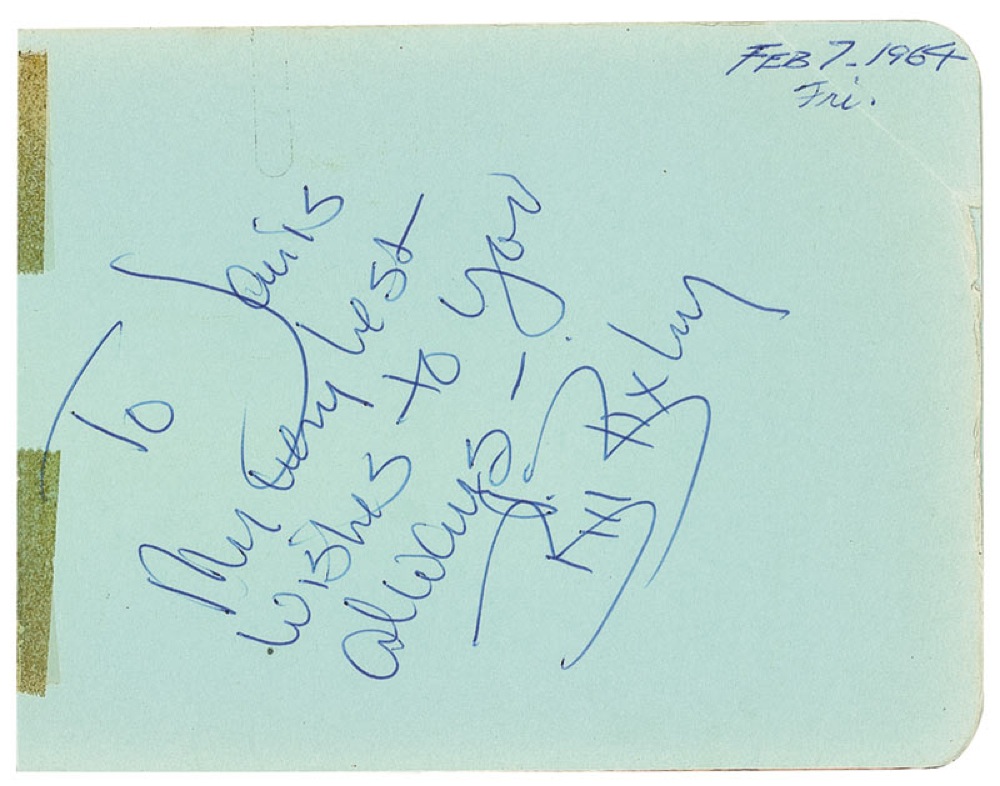 FEB 7-1964
Fri.
To Janis
My very best
wishes to you
always -
Bill Bixby